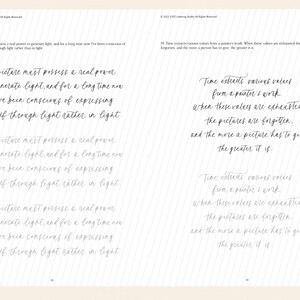 © 2023 LYFE Lettering Studio All Rights Reserved
a real power to generate light, and for a long time now I've been conscious of
through light rather than in light.
picture must possess a real power
generate light, and for a long time now
ve been conscious of expressing
self through light rather in light.
picture must possess a real power
generate light, and for a long time now
ve been conscious of expressing
self through light rather in light.
picture must possess a real power
generate light, and for a long time now
ve been conscious of expressing
self through light rather in light.
Time extracts various values from a painter's work. When these values are exhausted the
forgotten, and the more a picture has to give, the greater it is.
Time extracts various values
from a painter's work.
When these values are exhausted
the pictures are forgotten,
and the more a picture has to gi
the greater it is.
Time extracts various values
from a painter's work.
When these values are exhaus
the pictures are forgotten,
and the more a picture has to
the greater it is.